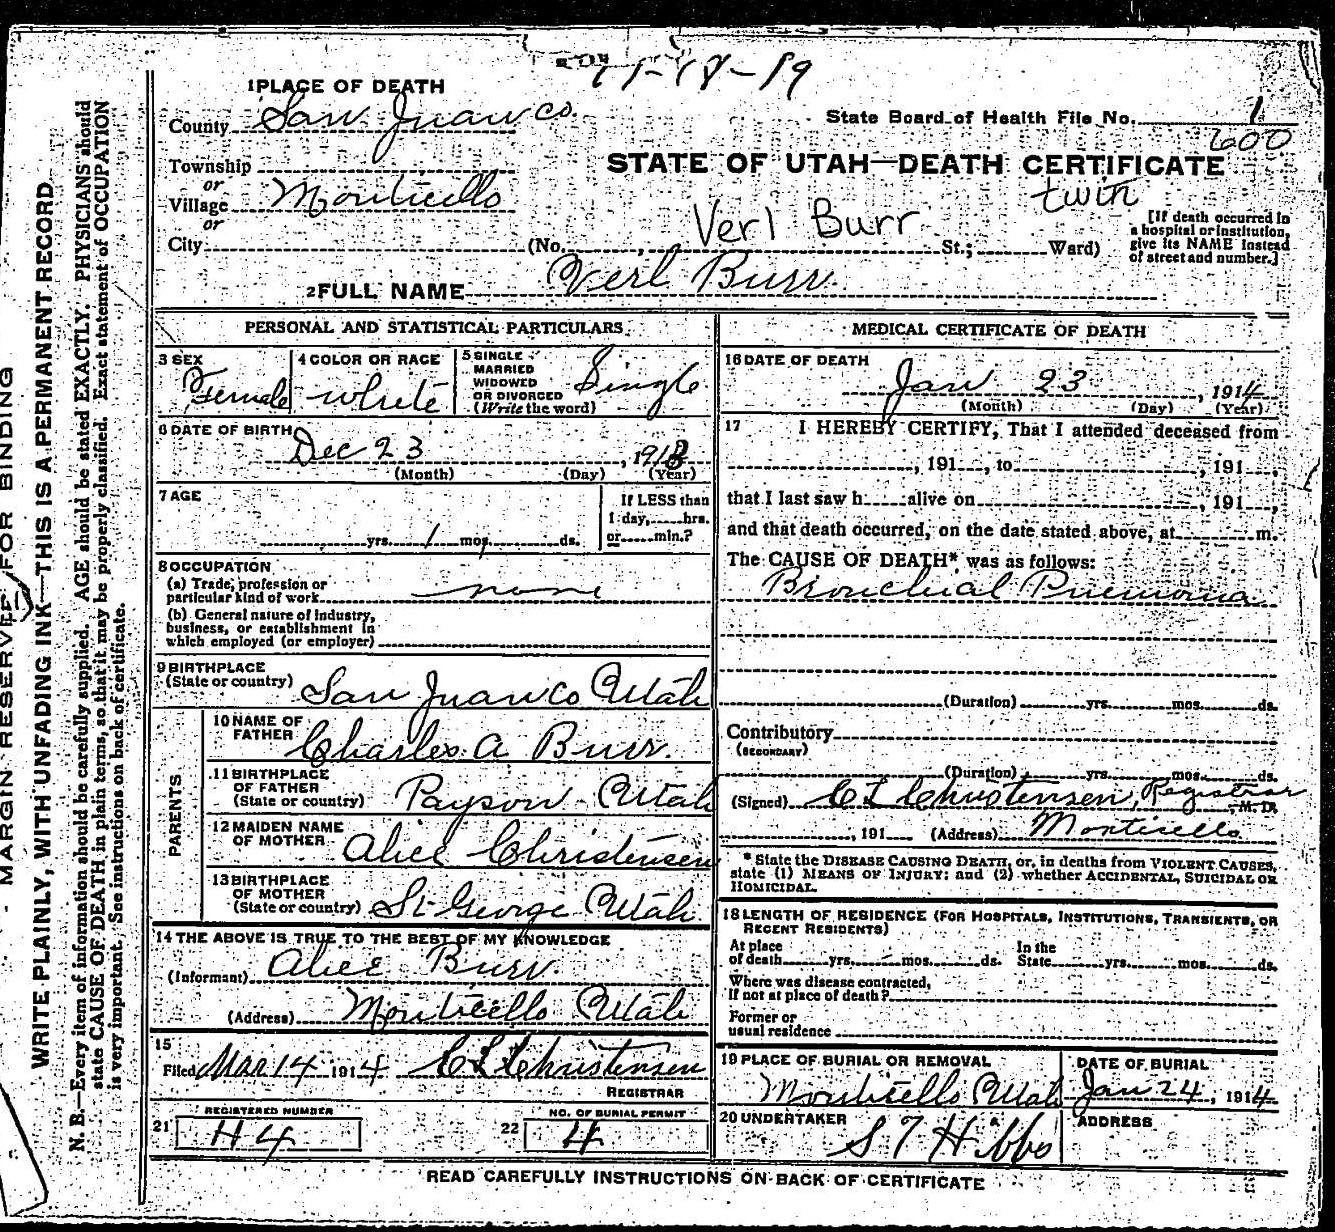 11-18-19
1 PLACE OF DEATH
County San Juan Co.
State Board of Health File No. 1
600
Township
or
Village Monticello
or
City
STATE OF UTAH—DEATH CERTIFICATE
twin
Verl Burr
(No. , St.; Ward)
[If death occurred in
a hospital or institution,
give its NAME instead
of street and number.]
2 FULL NAME Verl Burr.
PERSONAL AND STATISTICAL PARTICULARS
3 SEX
Female
4 COLOR OR RACE
White
5 SINGLE
MARRIED
WIDOWED
OR DIVORCED
(Write the word)
Single
6 DATE OF BIRTH
Dec 23, 1913
(Month) (Day) (Year)
7 AGE
yrs. 1 mos. ds.
If LESS than
1 day, hrs.
or min.?
8 OCCUPATION
(a) Trade, profession or
particular kind of work none
(b) General nature of industry,
business, or establishment in
which employed (or employer)
9 BIRTHPLACE
(State or country) San Juan Co Utah
PARENTS
10 NAME OF
FATHER Charles A Burr.
11 BIRTHPLACE
OF FATHER
(State or country) Payson - Utah
12 MAIDEN NAME
OF MOTHER Alice Christensen
13 BIRTHPLACE
OF MOTHER
(State or country) St George Utah.
14 THE ABOVE IS TRUE TO THE BEST OF MY KNOWLEDGE
(Informant) Alice Burr.
(Address) Monticello Utah
15
Filed Mar 14 1914 C L Christensen
REGISTRAR
21 REGISTERED NUMBER
H 4
22 NO. OF BURIAL PERMIT
4
MEDICAL CERTIFICATE OF DEATH
16 DATE OF DEATH
Jan 23, 1914
(Month) (Day) (Year)
17 I HEREBY CERTIFY, That I attended deceased from
, 191 , to , 191 ,
that I last saw h alive on , 191 ,
and that death occurred, on the date stated above, at m.
The CAUSE OF DEATH* was as follows:
Bronchual Pnemonia
(Duration) yrs. mos. ds.
Contributory
(SECONDARY)
(Duration) yrs. mos. ds.
(Signed) C L Christensen, Registrar, M. D.
, 191 (Address) Monticello
* State the DISEASE CAUSING DEATH, or, in deaths from VIOLENT CAUSES,
state (1) MEANS OF INJURY; and (2) whether ACCIDENTAL, SUICIDAL OR
HOMICIDAL.
18 LENGTH OF RESIDENCE (FOR HOSPITALS, INSTITUTIONS, TRANSIENTS, OR
RECENT RESIDENTS)
At place
of death yrs. mos. ds.
In the
State yrs. mos. ds.
Where was disease contracted,
If not at place of death?
Former or
usual residence
19 PLACE OF BURIAL OR REMOVAL
Monticello Utah
DATE OF BURIAL
Jan 24, 1914
20 UNDERTAKER
S T Hibbs
ADDRESS
READ CAREFULLY INSTRUCTIONS ON BACK OF CERTIFICATE
MARGIN RESERVED FOR BINDING
WRITE PLAINLY, WITH UNFADING INK—THIS IS A PERMANENT RECORD
N. B.—Every item of information should be carefully supplied. AGE should be stated EXACTLY. PHYSICIANS should
state CAUSE OF DEATH in plain terms, so that it may be properly classified. Exact statement of OCCUPATION
is very important. See instructions on back of certificate.